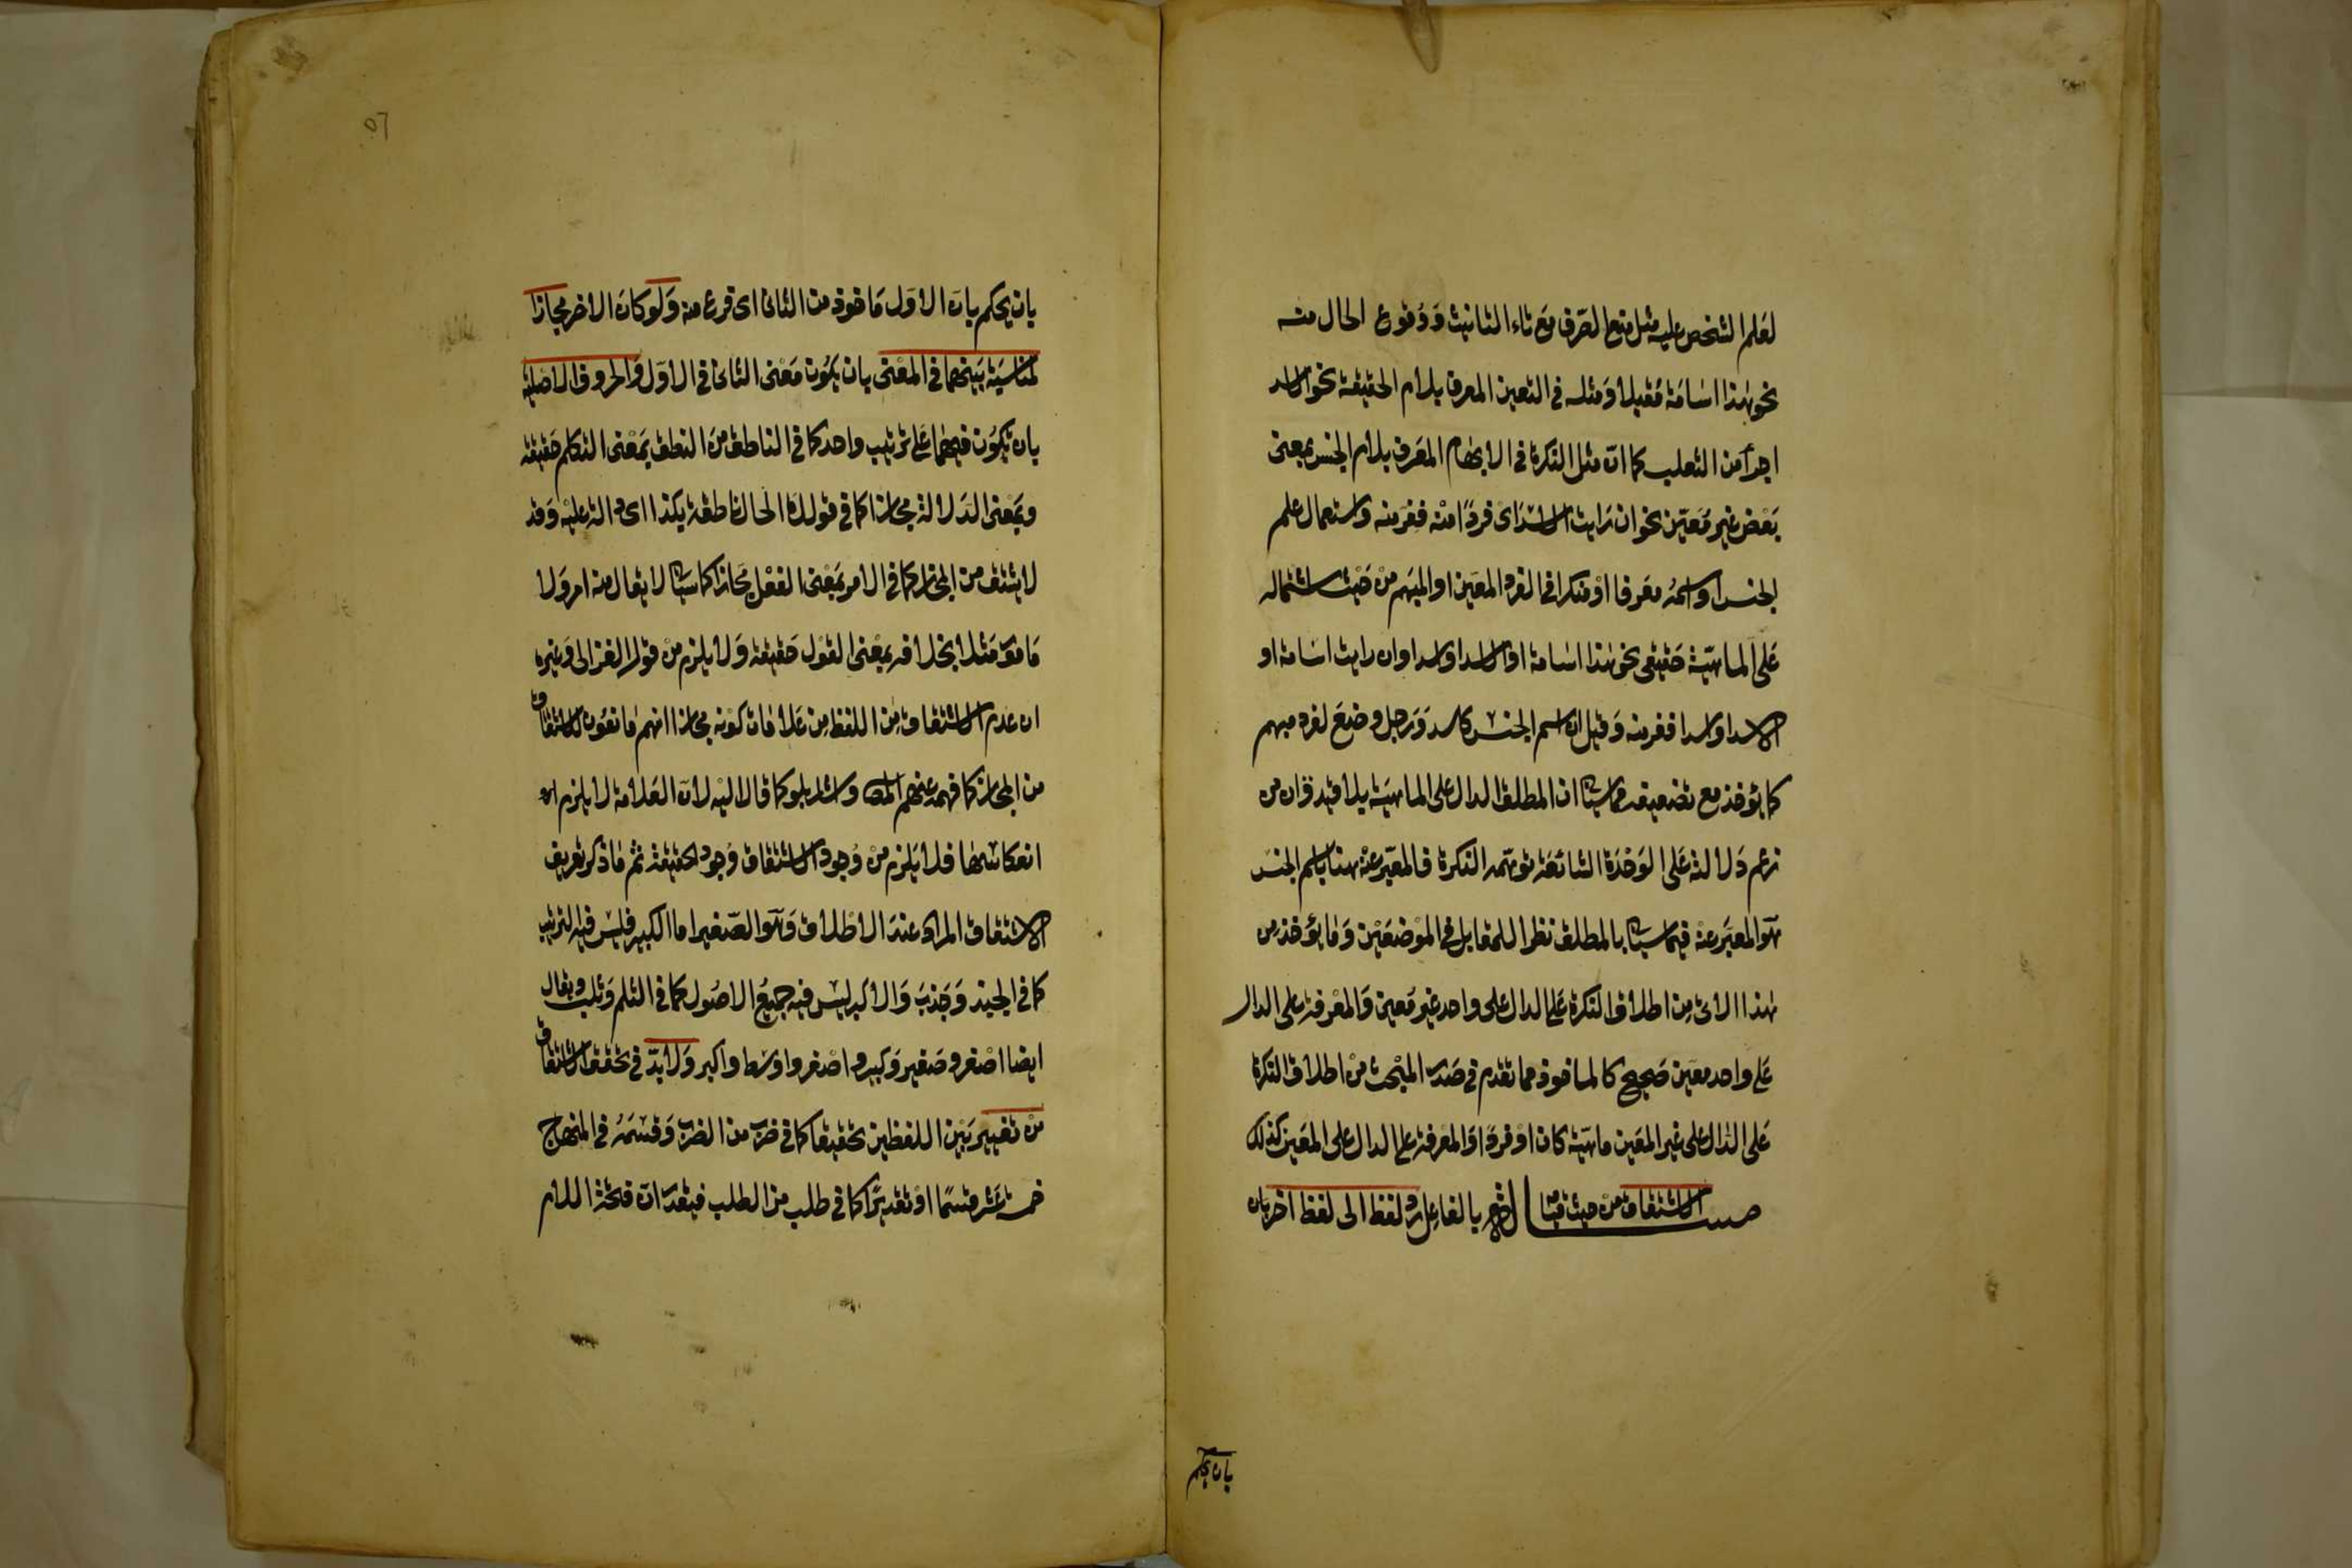 لعلم الشخص عليه مثل منع الصرف مع تاء التانيث ووقوع الحال منه
نحو هذا اسامة مقبلا ومثله في التعين المعرف بلام الحقيقة نحو الاسد
اجرأ من الثعلب كما ان مثل النكرة في الابهام المعرف بلام الجنس بمعنى
بعض غير معين نحو ان رايت الاسد اى فردا منه ففر منه واستعمال علم
الجنس او اسمه معرفا او منكرا في الفرد المعين او المبهم من حيث اشتماله
على الماهيّة حقيقى نحو هذا اسامة او الاسد او اسد او ان رايت اسامة او
الاسد او اسدا ففر منه وقيل ان اسم الجنس كاسد ورجل وضع لفرد مبهم
كما يؤخذ مع تضعيفه مما سياتى ان المطلق الدال على الماهية بلا قيد وان من
زعم دلالته على الوحدة الشائعة توهمه النكرة فالمعبر عنه هنا باسم الجنس
هو المعبر عنه فيما سياتى بالمطلق نظرا للمقابل في الموضعين وما يؤخذ من
هذا الاتى من اطلاق النكرة على الدال على واحد غير معين والمعرفة على الدال
على واحد معين صحيح كالماخوذ مما تقدم في صدر المبحث من اطلاق النكرة
على الدال على غير المعين ماهيّة كان او فردا والمعرفة على الدال على المعين كذلك
مسئلة الاشتقاق من حيث قيامه بالفاعل رد لفظ الى لفظ اخر بان
بان يحكم
٥٦
بان يحكم بان الاول ماخوذ من الثانى اى فرع منه ولو كان الاخر مجازا
لمناسبة بينهما في المعنى بان يكون معنى الثانى في الاول والحروف الاصلية
بان تكون فيهما على ترتيب واحد كما في الناطق من النطق بمعنى التكلم حقيقة
وبمعنى الدلالة مجازا كما في قولك الحال ناطقة بكذا اى دالة عليه وقد
لا يشتق من المجاز كما في الامر بمعنى الفعل مجازا كما سياتى لا يقال منه امر ولا
مامور مثلا بخلافه بمعنى القول حقيقة ولا يلزم من قول الغزالى وغيره
ان عدم الاشتقاق من اللفظ من علامات كونه مجازا انهم مانعون الاشتقاق
من المجاز كما فهمه عنهم المصه واشار بلو كما قال اليه لان العلامة لا يلزم
انعكاسها فلا يلزم من وجود الاشتقاق وجود الحقيقة ثم ما ذكر تعريف
الاشتقاق المراد عند الاطلاق وهو الصغير اما الكبير فليس فيه الترتيب
كما في الجبذ وجذب والاكبر ليس فيه جميع الاصول كما في الثلم وثلب ويقال
ايضا اصغر وصغير وكبير واصغر واوسط واكبر ولا بد في تحقق الاشتقاق
من تغيير بين اللفظين تحقيقا كما في ضرب من الضرب وقسمه في المنهاج
خمسة عشر قسما او تقديرا كما في طلب من الطلب فيقدر ان فتحة اللام